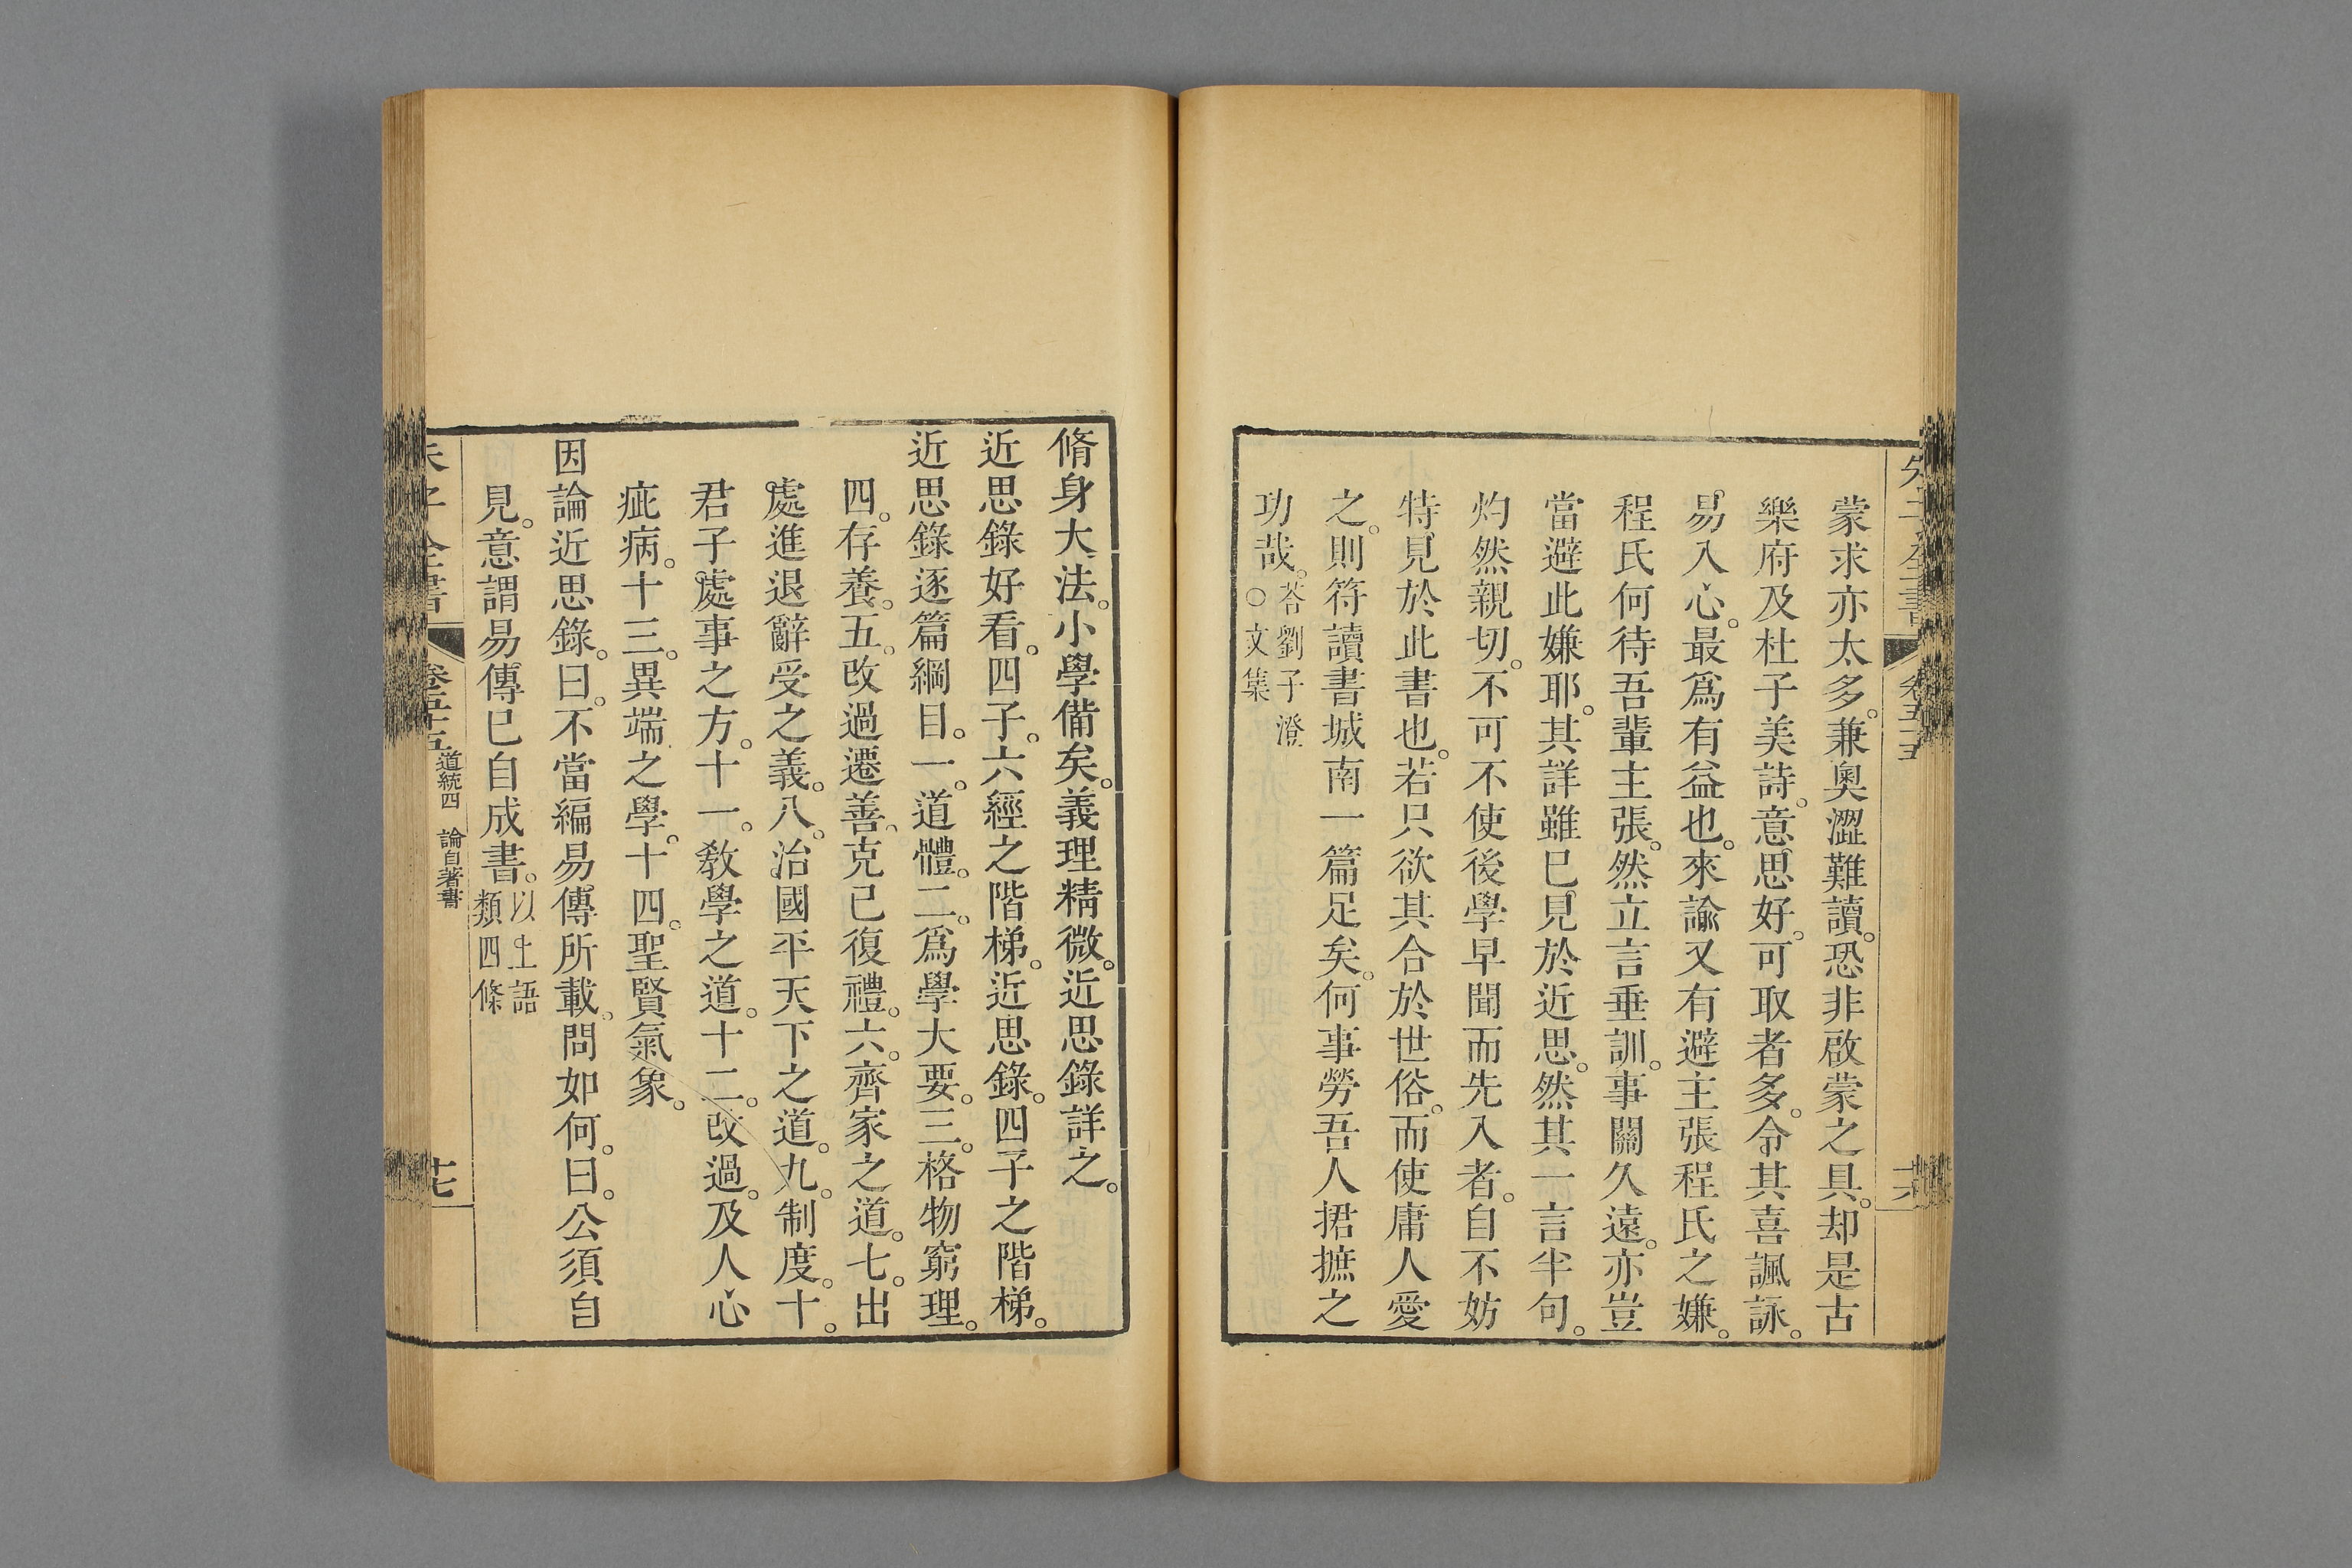 蒙求亦太多。兼奧澀難讀。恐非啟蒙之具。却是古
樂府及杜子美詩。意思好。可取者多。令其喜諷詠。
易入心。最爲有益也。來諭又有避主張程氏之嫌。
程氏何待吾輩主張。然立言垂訓。事關久遠。亦豈
當避此嫌耶。其詳雖已見於近思。然其一言半句。
灼然親切。不可不使後學早聞而先入者。自不妨
特見於此書也。若只欲其合於世俗。而使庸人愛
之。則符讀書城南一篇足矣。何事勞吾人捃摭之
功哉。答劉子澄
○文集
脩身大法。小學備矣。義理精微。近思錄詳之。
近思錄好看。四子。六經之階梯。近思錄。四子之階梯。
近思錄逐篇綱目。一。道體。二。爲學大要。三。格物窮理。
四。存養。五。改過遷善。克已復禮。六。齊家之道。七。出
處進退辭受之義。八。治國平天下之道。九。制度。十。
君子處事之方。十一。敎學之道。十二。改過。及人心
疵病。十三。異端之學。十四。聖賢氣象。
因論近思錄。曰。不當編易傳所載。問如何。曰。公須自
見。意謂易傳已自成書。以上語
類四條
朱子全書 卷五十五 道統四 論自著書 十七